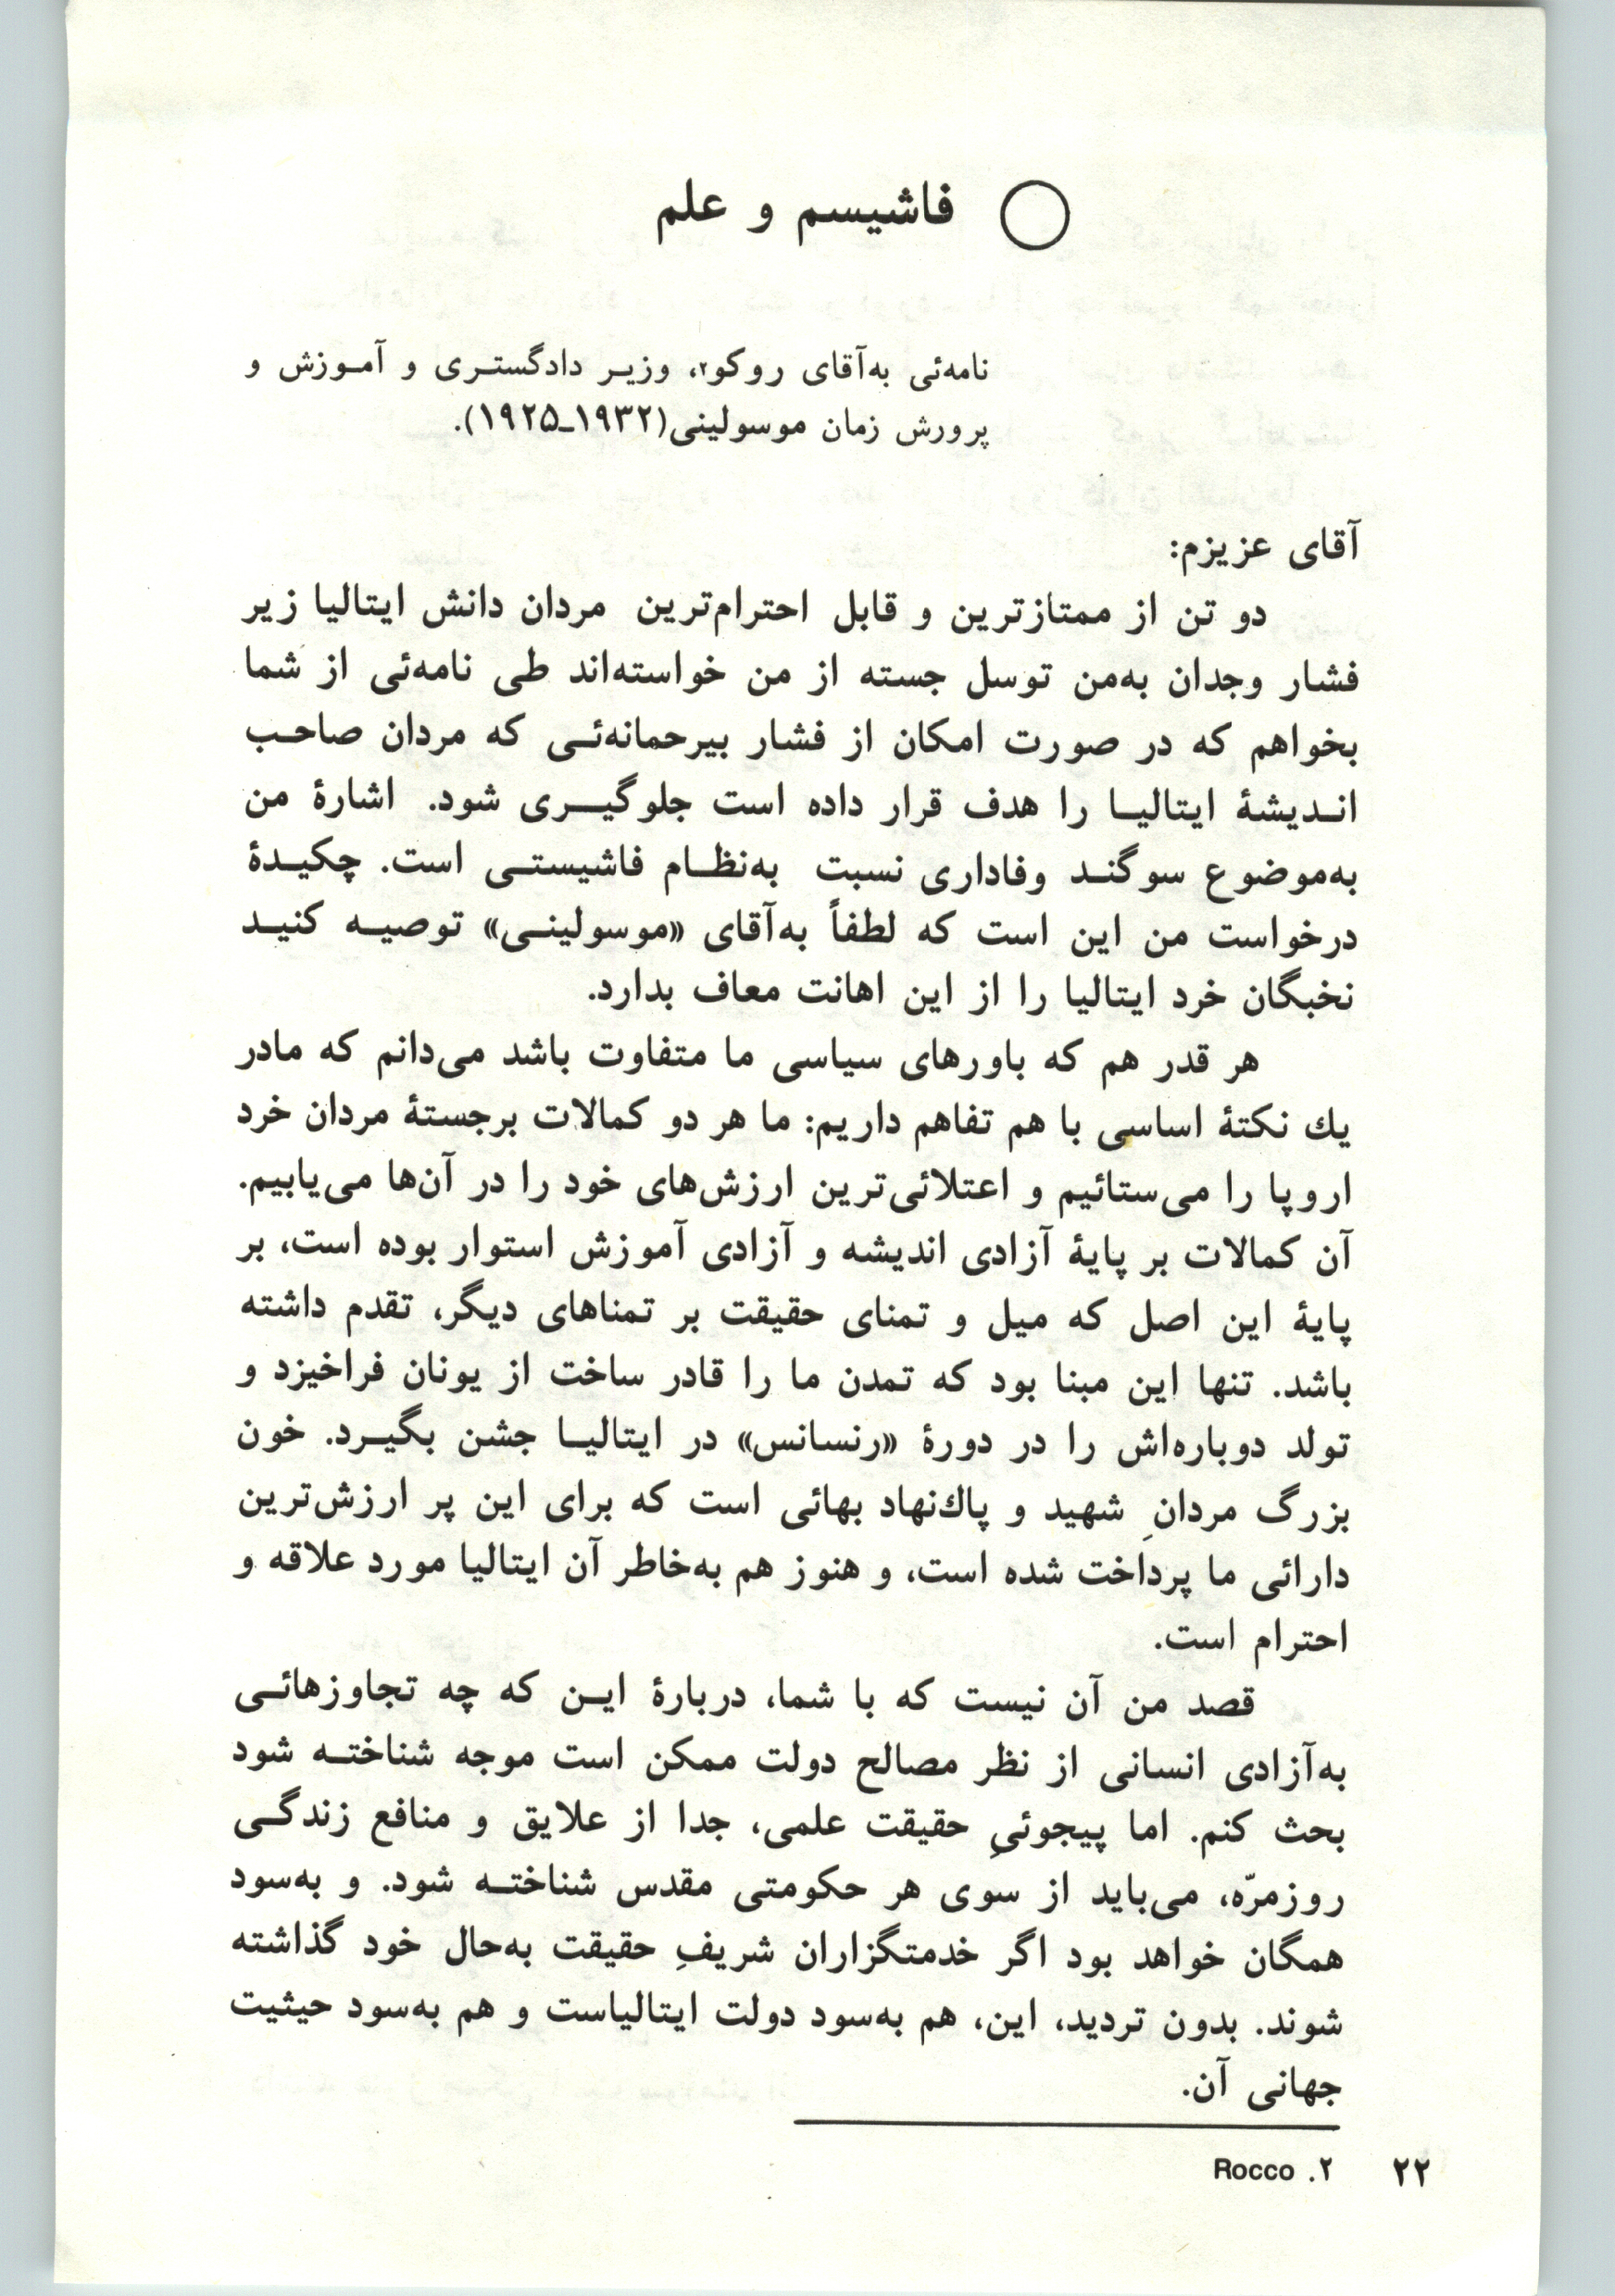 فاشیسم و علم
نامه‌ئی به‌آقای روکو۲، وزیر دادگستری و آموزش و
پرورش زمان موسولینی(۱۹۳۲ـ۱۹۲۵).
آقای عزیزم:
دو تن از ممتازترین و قابل احترام‌ترین مردان دانش ایتالیا زیر
فشار وجدان به‌من توسل جسته از من خواسته‌اند طی نامه‌ئی از شما
بخواهم که در صورت امکان از فشار بیرحمانه‌ئی که مردان صاحب
اندیشهٔ ایتالیا را هدف قرار داده است جلوگیری شود. اشارهٔ من
به‌موضوع سوگند وفاداری نسبت به‌نظام فاشیستی است. چکیدهٔ
درخواست من این است که لطفاً به‌آقای «موسولینی» توصیه کنید
نخبگان خرد ایتالیا را از این اهانت معاف بدارد.
هر قدر هم که باورهای سیاسی ما متفاوت باشد می‌دانم که مادر
یك نکتهٔ اساسی با هم تفاهم داریم: ما هر دو کمالات برجستهٔ مردان خرد
اروپا را می‌ستائیم و اعتلائی‌ترین ارزش‌های خود را در آن‌ها می‌یابیم.
آن کمالات بر پایهٔ آزادی اندیشه و آزادی آموزش استوار بوده است، بر
پایهٔ این اصل که میل و تمنای حقیقت بر تمناهای دیگر، تقدم داشته
باشد. تنها این مبنا بود که تمدن ما را قادر ساخت از یونان فراخیزد و
تولد دوباره‌اش را در دورهٔ «رنسانس» در ایتالیا جشن بگیرد. خون
بزرگ مردانِ شهید و پاك‌نهاد بهائی است که برای این پر ارزش‌ترین
دارائی ما پرداخت شده است، و هنوز هم به‌خاطر آن ایتالیا مورد علاقه و
احترام است.
قصد من آن نیست که با شما، دربارهٔ این که چه تجاوزهائی
به‌آزادی انسانی از نظر مصالح دولت ممکن است موجه شناخته شود
بحث کنم. اما پیجوئیِ حقیقت علمی، جدا از علایق و منافع زندگی
روزمرّه، می‌باید از سوی هر حکومتی مقدس شناخته شود. و به‌سود
همگان خواهد بود اگر خدمتگزاران شریفِ حقیقت به‌حال خود گذاشته
شوند. بدون تردید، این، هم به‌سود دولت ایتالیاست و هم به‌سود حیثیت
جهانی آن.
۲. Rocco
۲۲